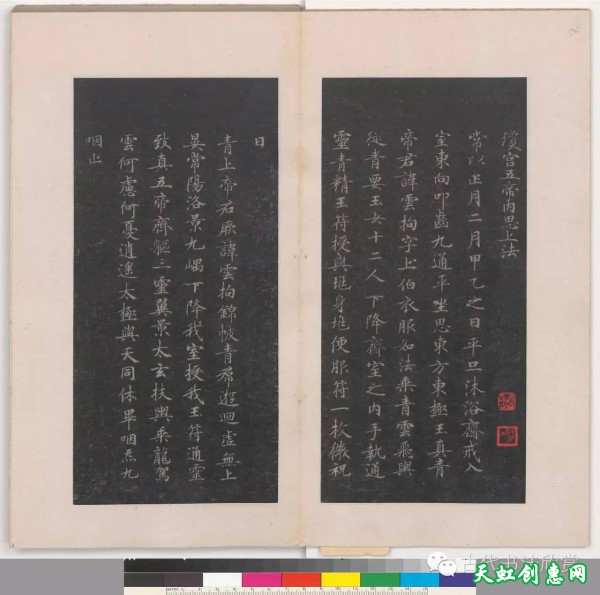 瓊宮五帝內思上法
常以正月二月甲乙之日平旦沐浴齋戒入
室東向叩齒九通平坐思東方東極玉真青
帝君諱雲拘字上伯衣服如法乘青雲飛輿
從青要玉女十二人下降齋室之內手執通
靈青精玉符授與兆身兆便服符一枚微祝
曰
青上帝君厥諱雲拘錦帔青帬遊迴虛無上
晏常陽洛景九嵎下降我室授我玉符通靈
致真五帝齊軀三靈翼景太玄扶輿乘龍駕
雲何慮何憂逍遙太極與天同休畢咽炁九
咽止
古代书法欣赏
天虹创惠网